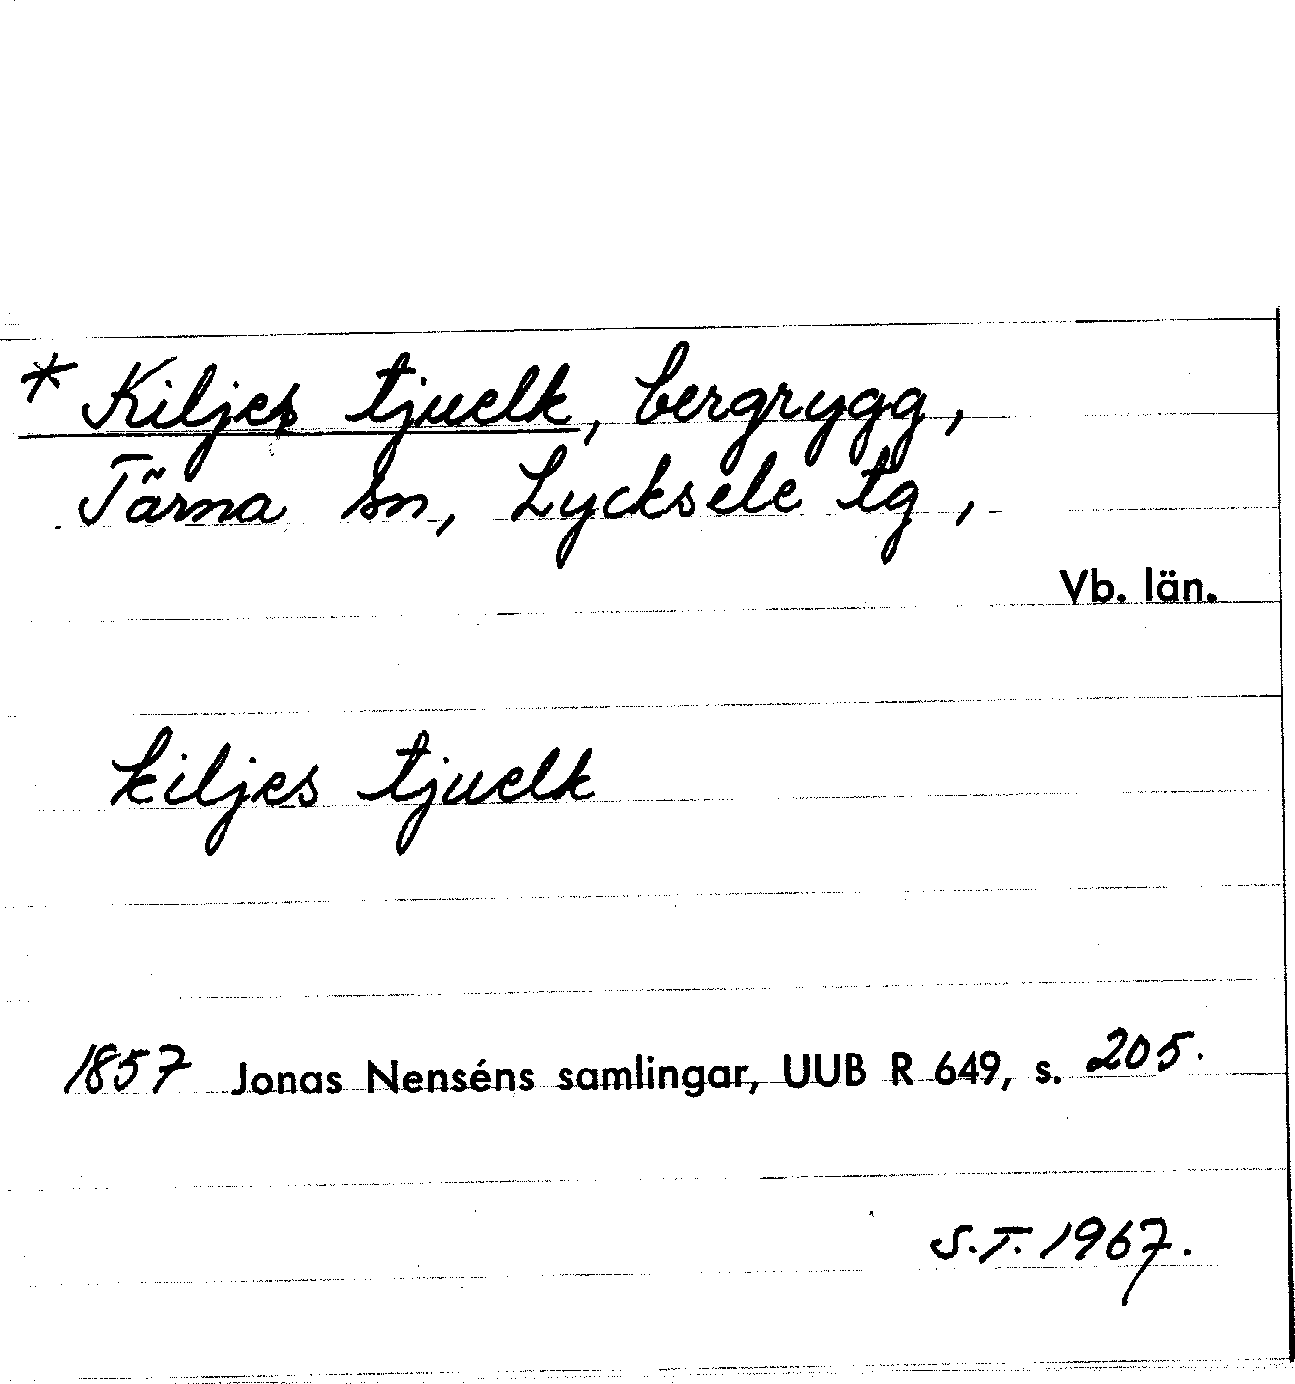 * Kiljes tjuelk, bergrygg,
Tärna sn, Lycksele tg,
Vb. län.
kiljes tjuelk
1857 Jonas Nenséns samlingar, UUB R 649, s. 205.
S.T. 1967.